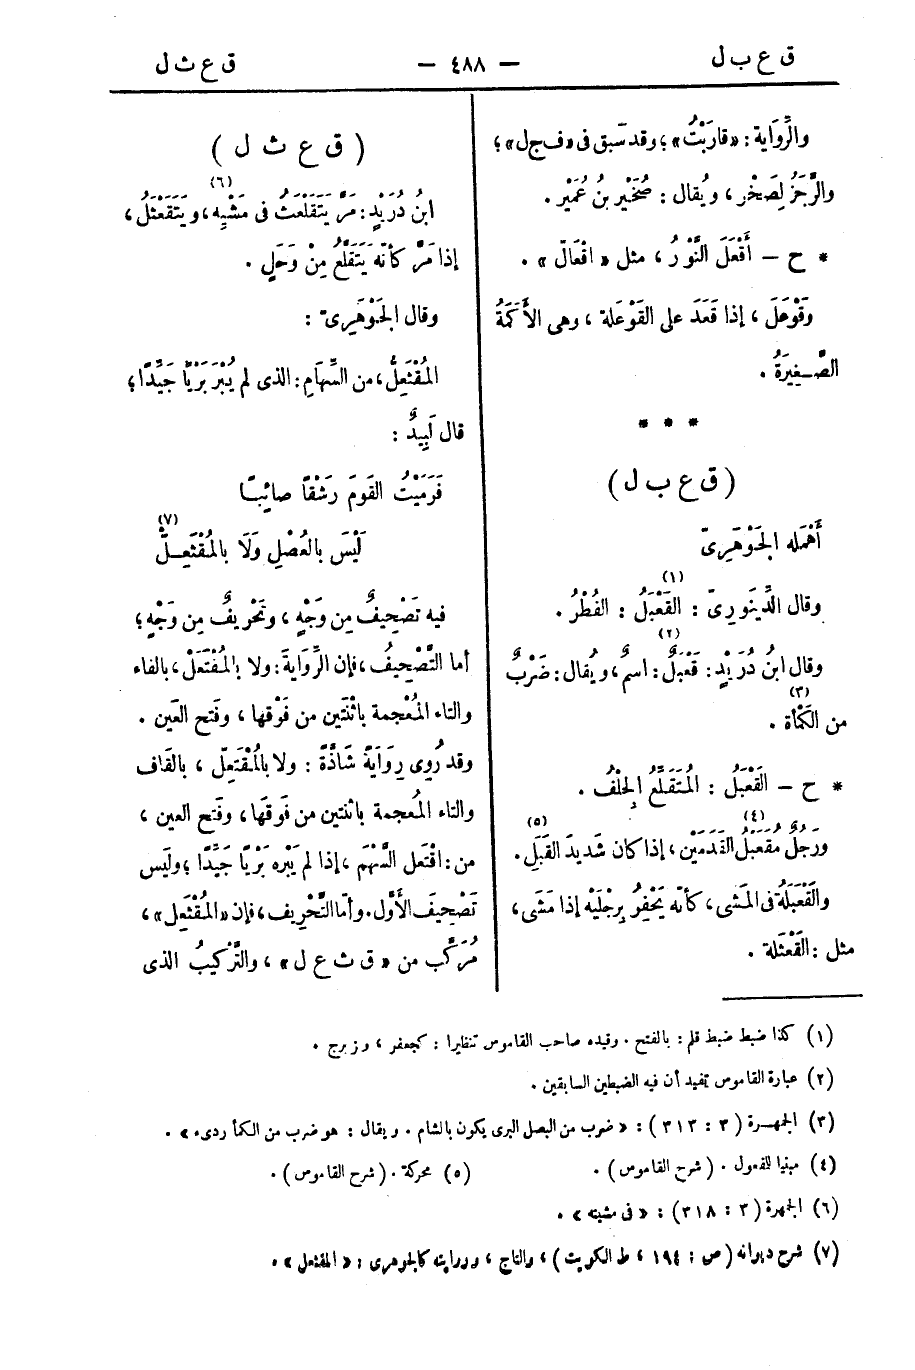 ق ع ب ل — ٤٨٨ — ق ع ث ل
والرِّوَاية : «قارَبْتُ» ؛ وقد سَبق فى «ف ج ل» ؛
والرَّجَزُ لِصَخْرٍ ، ويُقال : صُخَيْر بنُ عُمَيْر .
* ح — أَقْعَلَ النَّوْرُ ، مثل «اقْعَالّ» .
وقَوْعَلَ ، إذا قَعَدَ على القَوْعَلة ، وهى الأَكَمَةُ
الصَّغِيرَةُ .
* * *
(ق ع ب ل)
أَهْمَله الجَوْهَرِىّ
وقال الدِّينَورِىّ : القَعْبَلُ (١) : الفُطْرُ .
وقال ابنُ دُرَيْدٍ : قَعْبَلٌ (٢) : اسمٌ ، ويُقال : ضَرْبٌ
من الكَمْأة (٣) .
* ح — القَعْبَلُ : المُتَقَلِّعُ الِخلْفُ .
ورَجُلٌ مُقَعْبَلُ (٤) القَدَمَيْن ، إذا كان شَدِيدَ القَبَلِ (٥) .
والقَعْبَلَةُ فى المَشْى ، كأنّه يَحْفِرُ بِرِجْلَيْه إذا مَشَى ،
مثل : القَعْثَلة .
(ق ع ث ل)
ابنُ دُرَيْدٍ : مَرَّ يَتَقَلْعَثُ فى مَشْيِه (٦) ، ويَتَقَعْثَلُ ،
إذا مَرَّ كأنّه يَتَقَلَّعُ مِنْ وَحَلٍ .
وقال الجَوْهَرِىّ :
المُقْثَعِلُّ ، من السِّهَامِ : الذى لم يُبْرَ بَرْيًا جَيِّدًا ؛
قال لَبِيدٌ :
فَرَمَيْتُ القَومَ رَشْقًا صائِبًا
لَيْسَ بالعُصْلِ وَلَا بالمُقْثَعِلّْ (٧)
فيه تَصْحِيفٌ مِن وَجْهٍ ، وتَحْرِيفٌ مِن وَجْهٍ ؛
أما التَّصْحِيفُ ، فإن الرِّوَايةَ : ولا بالمُفْتَعَلْ ، بالفاء
والتاء المُعْجمة باثْنَتَين من فَوْقها ، وفَتح العَين .
وقد رُوى رِوَايَةً شَاذَّةً : ولا بالمُقْتَعِلّ ، بالقَاف
والتاء المُعجمة باثنتين من فَوقَها ، وفَتح العين ،
من : اقْتَعل السَّهْم ، إذا لم يَبْره بَرْيًا جَيِّدًا ؛ ولَيس
تَصْحيفَ الأوَّل . وأمّا التَّحْرِيف ، فإن «المُقْثَعِل» ،
مُرَكَّب من «ق ث ع ل» ، والتَّرْكيبُ الذى
(١) كذا ضبط ضبط قلم : بالفتح . وقيده صاحب القاموس تنظيرا : كجعفر ، وزبرج .
(٢) عبارة القاموس تفيد أن فيه الضبطين السابقين .
(٣) الجمهرة (٣ : ٣١٣) : « ضرب من البصل البرى يكون بالشام . ويقال : هو ضرب من الكمأ ردىء » .
(٤) مبنيا للمفعول . (شرح القاموس) . (٥) محركة . (شرح القاموس) .
(٦) الجمهرة (٣ : ٣١٨) : « فى مشيته » .
(٧) شرح ديوانه (ص : ١٩٤ ، ط الكويت) ، والتاج ، وروايته كالجوهرى : « المقثعل » .